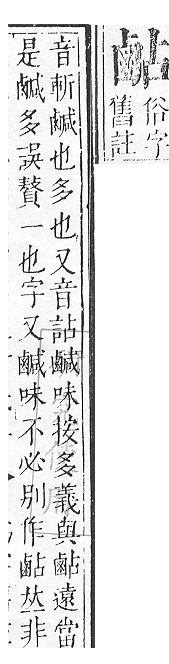 俗字
舊註
音斬鹹也多也又音詀鹹味按多義與遠當
是鹹多誤贅一也字又鹹味不必別作𠀤非